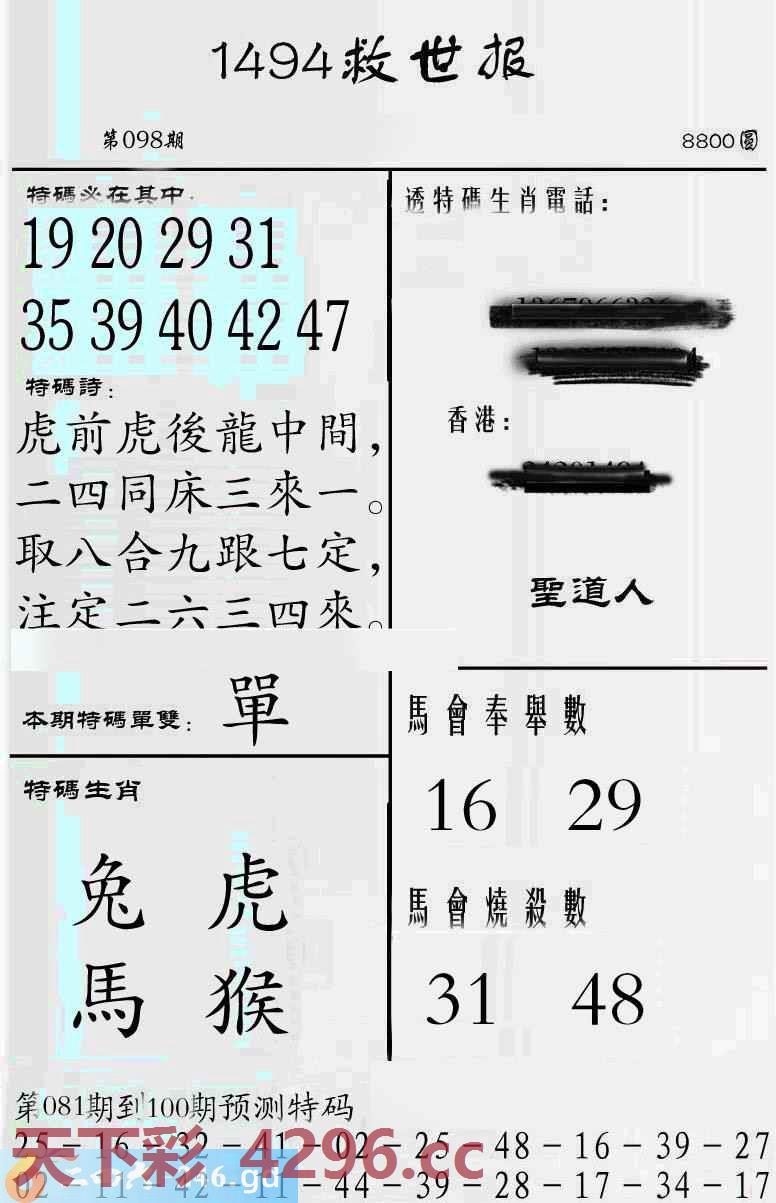 1494救世报
第098期
8800圓
特碼必在其中:
19 20 29 31
35 39 40 42 47
特碼詩:
虎前虎後龍中間,
二四同床三來一。
取八合九跟七定,
注定二六三四來。
本期特碼單雙: 單
特碼生肖
兔 虎
馬 猴
透特碼生肖電話:
香港:
聖道人
馬會奉舉數
16 29
馬會燒殺數
31 48
第081期到100期预测特码
25-16-32-41-02-25-48-16-39-27
02-11-42-11-44-39-28-17-34-17
天下彩 4296.cc